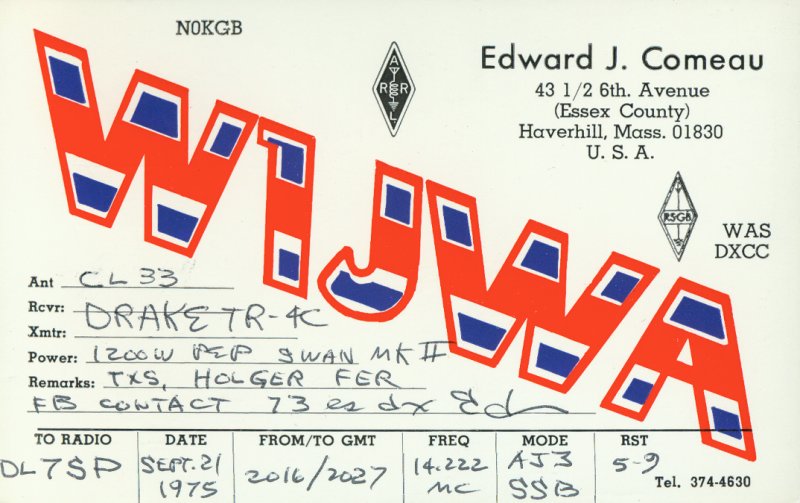 N0KGB
ARRL
Edward J. Comeau
43 1/2 6th. Avenue
(Essex County)
Haverhill, Mass. 01830
U. S. A.
W1JWA
RSGB
WAS
DXCC
Ant CL 33
Rcvr: DRAKE TR-4C
Xmtr:
Power: 1200W PEP SWAN MK II
Remarks: TXS, HOLGER FER
FB CONTACT 73 es dx Ed
TO RADIO DATE FROM/TO GMT FREQ MODE RST
DL7SP SEPT. 21 1975 2016/2027 14.222 MC AJ3 SSB 5-9
Tel. 374-4630